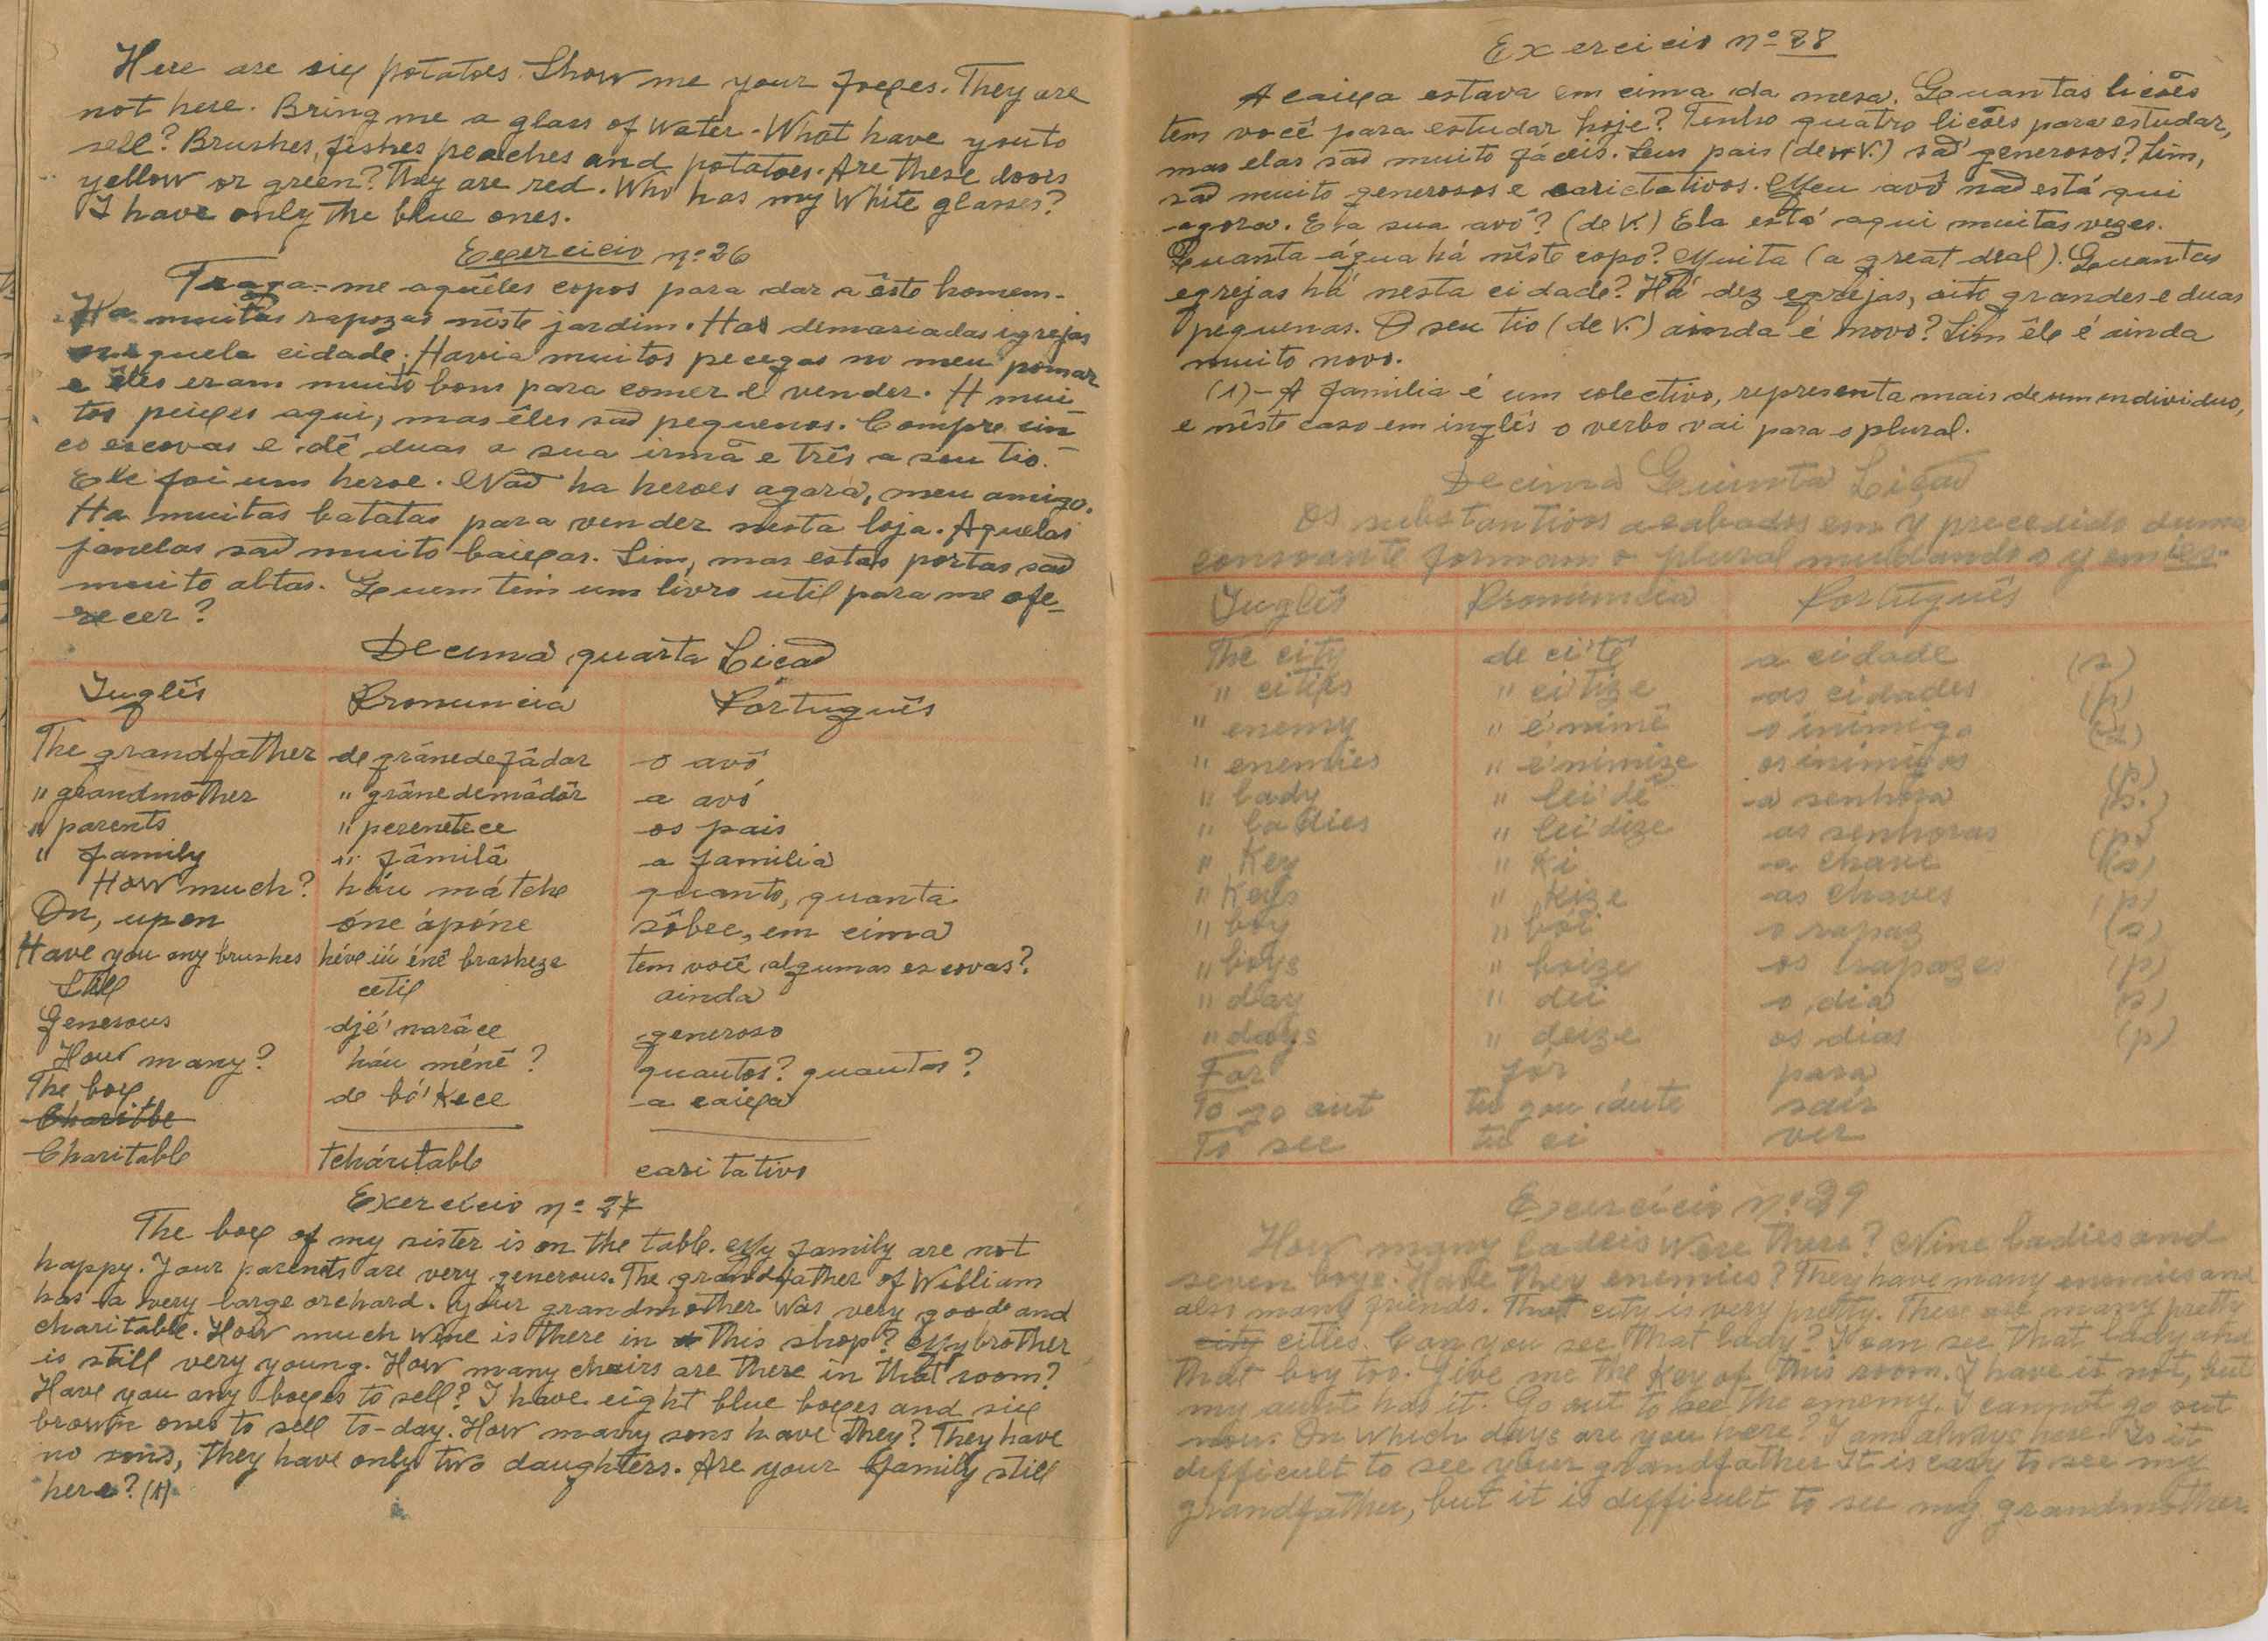 Here are six potatoes. Show me your foxes. They are
not here. Bring me a glass of water. What have you to
sell? Brushes, fishes peaches and potatoes. Are these doors
yellow or green? They are red. Who has my White glasses?
I have only the blue ones.
Exercicio nº 26
Traga-me aquêles copos para dar a êste homem.
Ha muitas rapozas nêste jardim. Ha demasiadas igrejas
naquela cidade. Havia muitos pecegos no meu pomar
e êles eram muito bons para comer e vender. H mui
tos peixes aqui, mas êles são pequenos. Compre cin
co escovas e dê duas a sua irmã e três a seu tio.
Ele foi um heroe. Não ha heroes agora, meu amigo.
Ha muitas batatas para vender nesta loja. Aquelas
janelas são muito baixas. Sim, mas estas portas são
muito altas. Quem tem um livro util para me ofe-
recer?
Decima quarta Lição
Inglês Pronuncia Português
The grandfather de grânedefâdar o avô
" grandmother " grânedemâdâr a avó
" parents " perenetece os pais
" family " fâmilâ a familia
How much? háu mátche quanto, quanta
On, upon óne ápóne sôbre, em cima
Have you any brushes héve iú énê brasheze tem você algumas escovas?
Still cetil ainda
Generous djé'narâce generoso
How many? háu ménê? quantos? quantas?
The box de bó'kece a caixa
Charitbe
Charitable tcháritable caritativo
Exercicio nº 27
The box of my sister is on the table. My family are not
happy. Your parents are very generous. The grandfather of William
has a very large orchard. Your grandmother was very good and
charitable. How much wine is there in this shop? My brother
is still very young. How many chairs are there in that room?
Have you any boxes to sell? I have eight blue boxes and six
brown ones to sell to-day. How many sons have they? They have
no sons, they have only two daughters. Are your family still
here? (1)
Exercicio nº 28
A caixa estava em cima da mesa. Quantas licões
tem você para estudar hoje? Tenho quatro licões para estudar,
mas elas são muito fáceis. Seus pais (de V.) são generosos? Sim,
são muito generosos e carictativos. Meu avô não está qui
agora. E a sua avó? (de V.) Ela está aqui muitas vezes.
Quanta água há nêste copo? Muita (a great deal). Quantas
egrejas há nesta cidade? Há dez egrejas, oito grandes e duas
pequenas. O seu tio (de V.) ainda é novo? Sim êle é ainda
muito novo.
(1) - A familia é um colectivo, representa mais de um individuo,
e nêste caso em inglês o verbo vai para o plural.
Decima Quinta Lição
Os substantivos acabados em y precedido duma
consoante formam o plural mudando o y em ies.
Inglês Pronuncia Português
The city de ci'tê a cidade (s)
" cities " ci'tize as cidades (p)
" enemy " é'nimê o inimigo (s)
" enemies " é'nimize os inimigos (p)
" lady " lei'dê a senhora (s.)
" ladies " lei'dize as senhoras (p)
" Key " Ki a chave (s)
" Keys " Kize as chaves (p)
" boy " bói o rapaz (s)
" boys " boize os rapazes (p)
" day " dei o dia (s)
" days " deize os dias (p)
For fór para
To go out tu gou áute sair
To see tu ci ver
Exercicio nº 29
How many ladeis were there? Nine ladies and
seven boys. Have they enemies? They have many enemies and
also many friends. That city is very pretty. There are many pretty
city cities. Can you see that lady? I can see that lady and
that boy too. Give me the Key of this room. I have it not, but
my aunt has it. Go out to see the enemy. I cannot go out
now. On which days are you here? I am always here. Is it
difficult to see your grandfather It is easy to see my
grandfather, but it is difficult to see my grandmother.